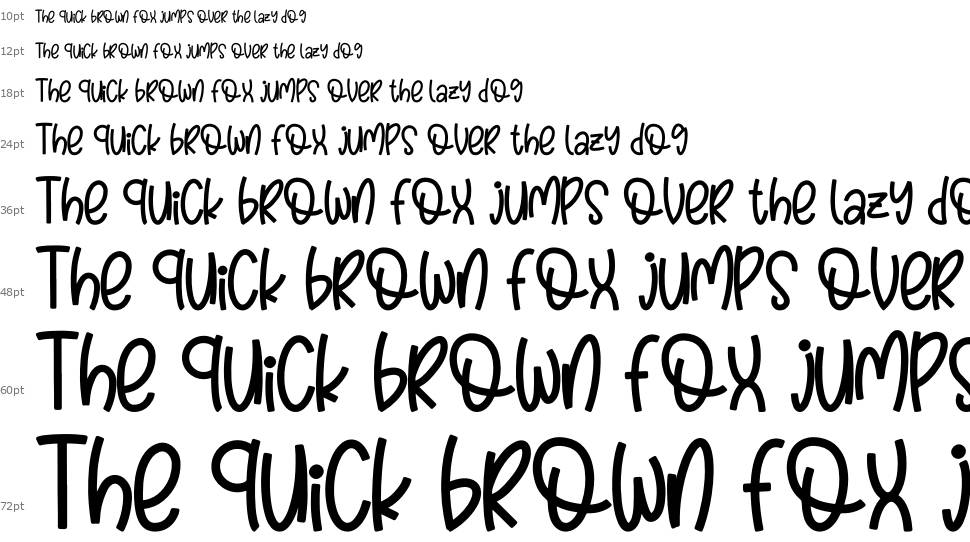 10pt The quick brown fox jumps over the lazy dog
12pt The quick brown fox jumps over the lazy dog
18pt The quick brown fox jumps over the lazy dog
24pt The quick brown fox jumps over the lazy dog
36pt The quick brown fox jumps over the lazy do
48pt The quick brown fox jumps over
60pt The quick brown fox jumps
72pt The quick brown fox j